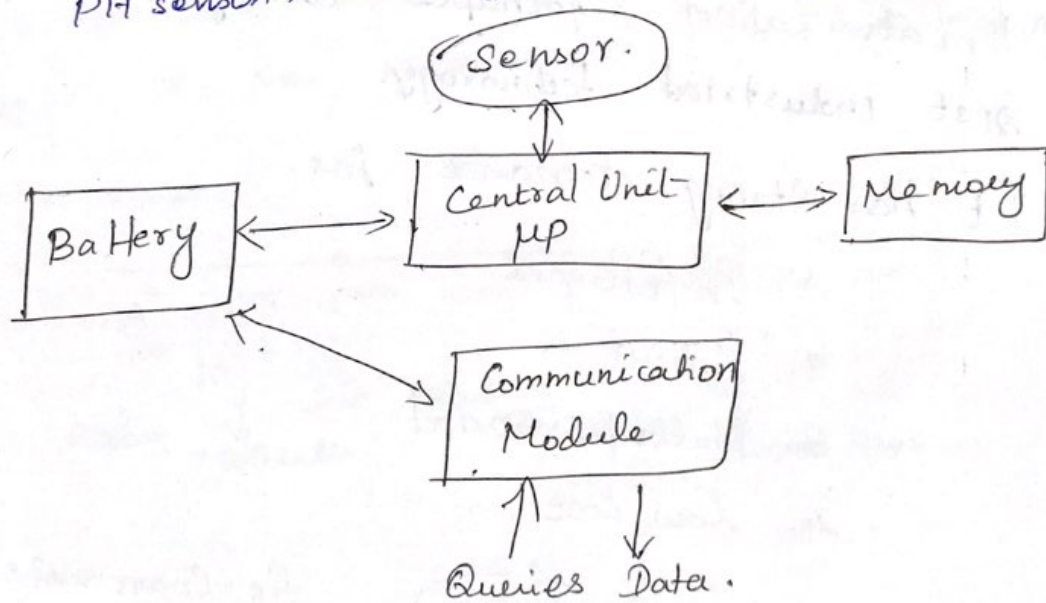 PH sensor
Sensor.
Central Unit
μP
Memory
Battery
Communication
Module
Queries Data.